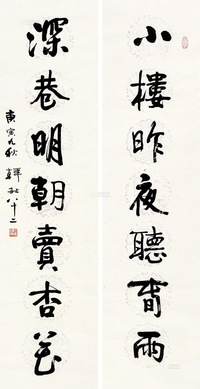 小樓昨夜聽春雨
深巷明朝賣杏花
庚寅九秋
八十二